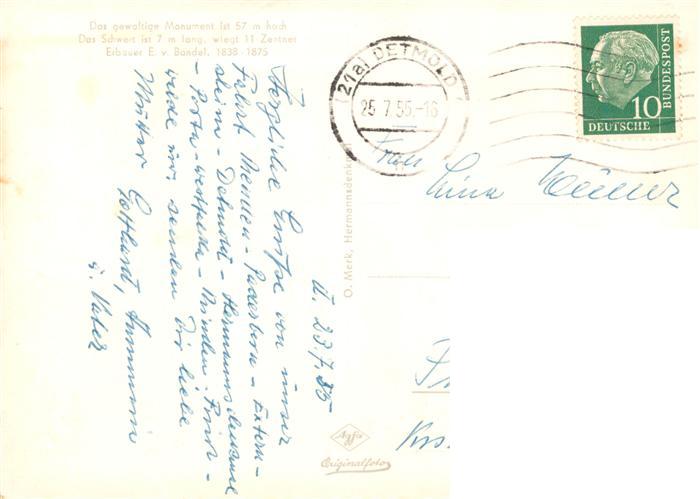 Das gewaltige Monument ist 57 m hoch
Das Schwert ist 7 m lang, wiegt 11 Zentner
Erbauer E. v. Bandel, 1838 - 1875
(21a) DETMOLD
25.7.55.-16
10
DEUTSCHE
BUNDESPOST
Frau
O. Merk, Hermannsdenk
23.7.55
Herzliche Grüße von unser
Fahrt - Paderborn - Extern-
steine - Detmold - Hermannsdenkmal
- Porta-westfalica - Minden.
wir senden Dir liebe
Mutter Gotthard,
u. Vater
Agfa
Originalfoto
Krs.